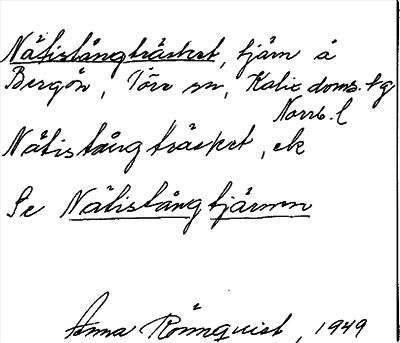 Nätistångträsket, tjärn å
Bergön, Töre sn, Kalix doms. tg
Norrb. l
Nätistångträsket, ek
Se Nätistångtjärnen
Anna Rönnquist, 1949